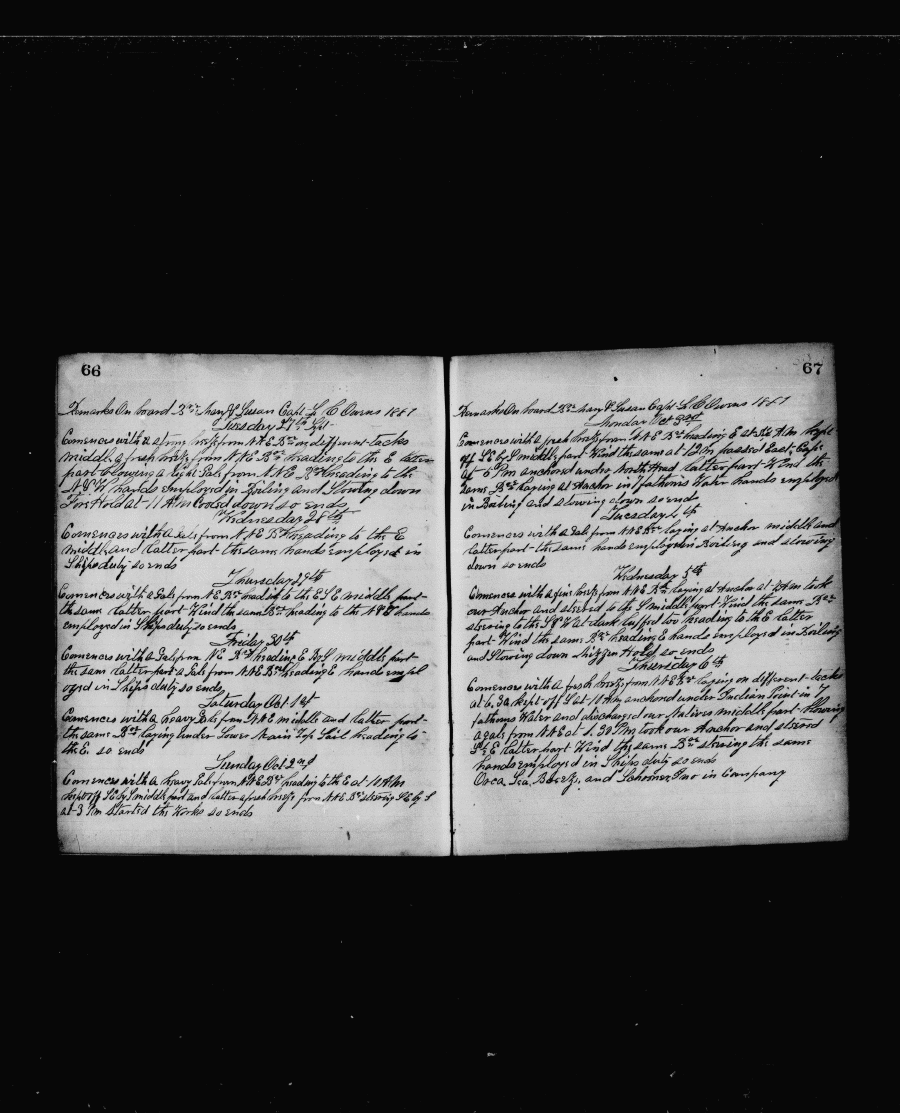 66
Remarks On board Bark Mary & Susan Capt L C Owens 1887
Tuesday 27th Sept
Comences with a strong breeze from NNE Bark on different tacks
middle a fresh breeze from NNE Bark heading to the E latter
part blowing a light Gale from NNE Bark heading to the
hands employed in Boiling and Stowing down
Fore Hold at 11 AM Cooled down so ends
Wednesday 28th
Comences with a Gale from NNE Bark heading to the E
Middle and latter part the same hands employed in
Ships duty so ends
Thursday 29th
Comences with a Gale from NE Bark heading to the ESE middle part
the same latter part Wind the same Bark heading to the hands
employed in Ships duty so ends
Friday 30th
Comences with a Gale from NE Bark heading E middle part
the same latter part a Gale from NNE Bark heading E hands empl
oyed in Ships duty so ends
Saturday Oct 1st
Comences with a heavy Gale from NNE middle and latter part
the same Bark laying under Lower Main Top Sail heading to
the E. so ends
Sunday Oct 2nd
Comences with a heavy Gale from NNE Bark heading to the E at 10 AM
kept off SE by S middle part and latter a fresh breeze from NNE Bark steering SE by S
at 3 PM started the Works so ends
67
Remarks On board Bark Mary & Susan Capt L C Owens 1887
Monday Oct 3rd
Comences with a fresh breeze from NNE Bark heading E at AM kept
off SE by S middle part Wind the same at 12 M passed East Cape
at 5 PM anchored under North Head latter part Wind the
same Bark laying at Anchor in 7 fathoms Water hands employed
in Boiling and stowing down so ends
Tuesday 4th
Comences with a Gale from NNE Bark laying at Anchor middle and
latter part the same hands employed in Boiling and stowing
down so ends
Wednesday 5th
Comences with a fresh breeze from NNE Bark laying at Anchor at AM took
our Anchor and steered to the S middle part Wind the same Bark
steering to the S & W at dark luffed too heading to the E latter
part Wind the same Bark heading E hands employed in Boiling
and Stowing down Mizzen Hold so ends
Thursday 6th
Comences with a fresh breeze from NNE Bark laying on different tacks
at 6.30 kept off S at 10 AM anchored under Indian Point in 7
fathoms Water and discharged our Natives middle part blowing
a gale from NNE at 1.30 PM took our Anchor and steered
S by E latter part Wind the same Bark steering the same
hands employed in Ships duty so ends
Orca, Sea Breeze, and Schooner in Company